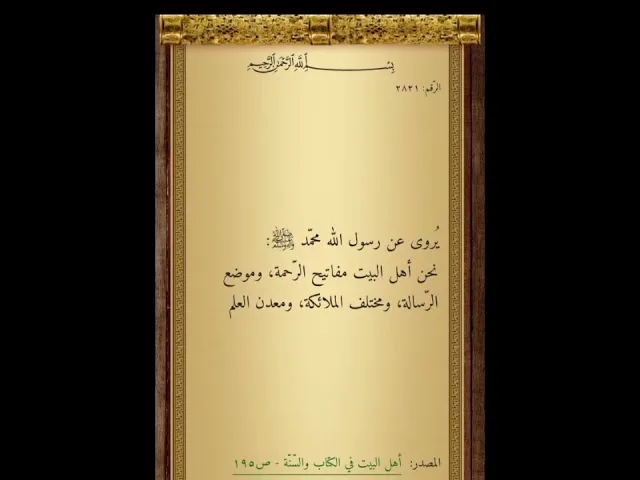 بِسْمِ اللَّهِ الرَّحْمَٰنِ الرَّحِيمِ
الرّقم: ٢٨٢١
يُروى عن رسول الله محمّد ﷺ:
نحن أهل البيت مفاتيح الرّحمة، وموضع
الرّسالة، ومختلف الملائكة، ومعدن العلم
المصدر: أهل البيت في الكتاب والسّنّة - ص١٩٥